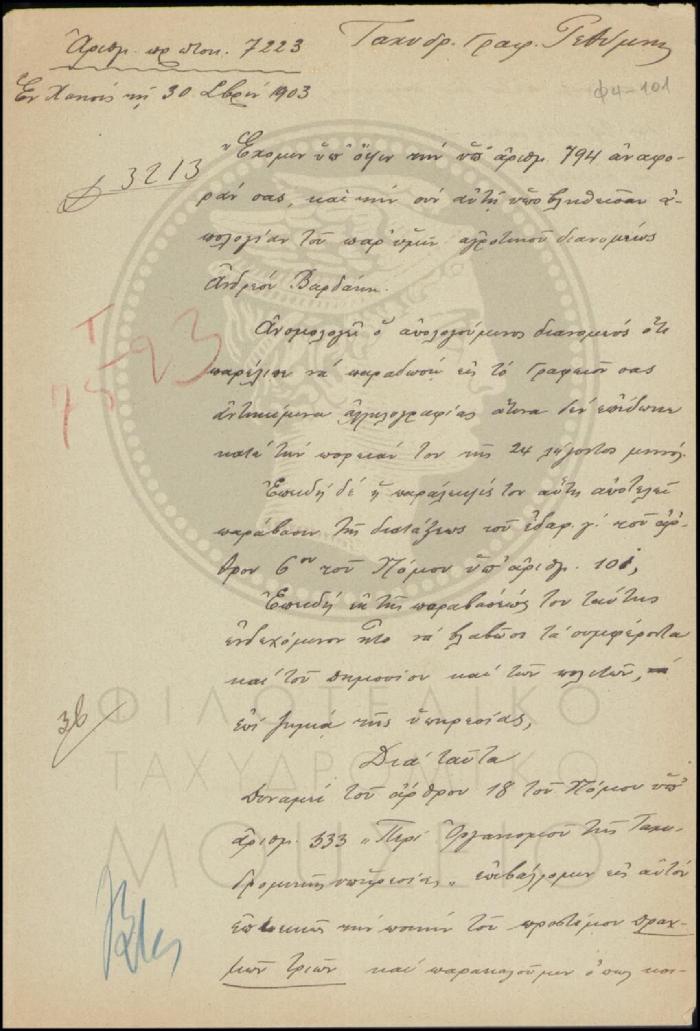 Ἀριθμ. πρωτοκ. 7223
Ταχυδρ. Γραφ. Ρεθύμνης
Ἐν Χανίοις τῇ 30 1903
Φ4-101
3213
Ἔχομεν ὑπ' ὄψιν τὴν ὑπ' ἀριθμ. 794 ἀναφο-
ράν σας, καὶ τὴν σὺν αὐτῇ ὑποβληθεῖσαν ἀ-
πολογίαν τοῦ παρ' ὑμῖν ἀγροτικοῦ διανομέως
Ἀνδρέου Βαρδάκη.
Ἀνομολογεῖ ὁ ἀπολογούμενος διανομεὺς ὅτι
παρέλιπε νὰ παραδώσῃ εἰς τὸ Γραφεῖον σας
ἀντικείμενα ἀλληλογραφίας ἅτινα δὲν ἐπέδωκε
κατὰ τὴν πορείαν του τῆς 24 λήγοντος μηνός.
Ἐπειδὴ δὲ ἡ παράλειψίς του αὕτη ἀποτελεῖ
παράβασιν τῆς διατάξεως τοῦ ἐδαφ. γ'. τοῦ ἄρ-
θρου 6ου τοῦ Νόμου ὑπ' ἀριθμ. 101,
Ἐπειδὴ ἐκ τῆς παραβάσεώς του ταύτης
ἐνδεχόμενον ἦτο νὰ βλαβῶσι τὰ συμφέροντα
καὶ τοῦ Δημοσίου καὶ τῶν πολιτῶν,
ἐπὶ ζημίᾳ τῆς ὑπηρεσίας,
36
Διὰ ταῦτα
Δυνάμει τοῦ ἄρθρου 18 τοῦ Νόμου ὑπ'
ἀριθμ. 333 „Περὶ Ὀργανισμοῦ τῆς Ταχυ-
δρομικῆς ὑπηρεσίας„ ἐπιβάλλομεν εἰς αὐτὸν
ἐπιεικῶς τὴν ποινὴν τοῦ προστίμου δραχ-
μῶν τριῶν καὶ παρακαλοῦμεν ὅπως κοι-
ΦΙΛΟΤΕΛΙΚΟ
ΤΑΧΥΔΡΟΜΙΚΟ
ΜΟΥΣΕΙΟ